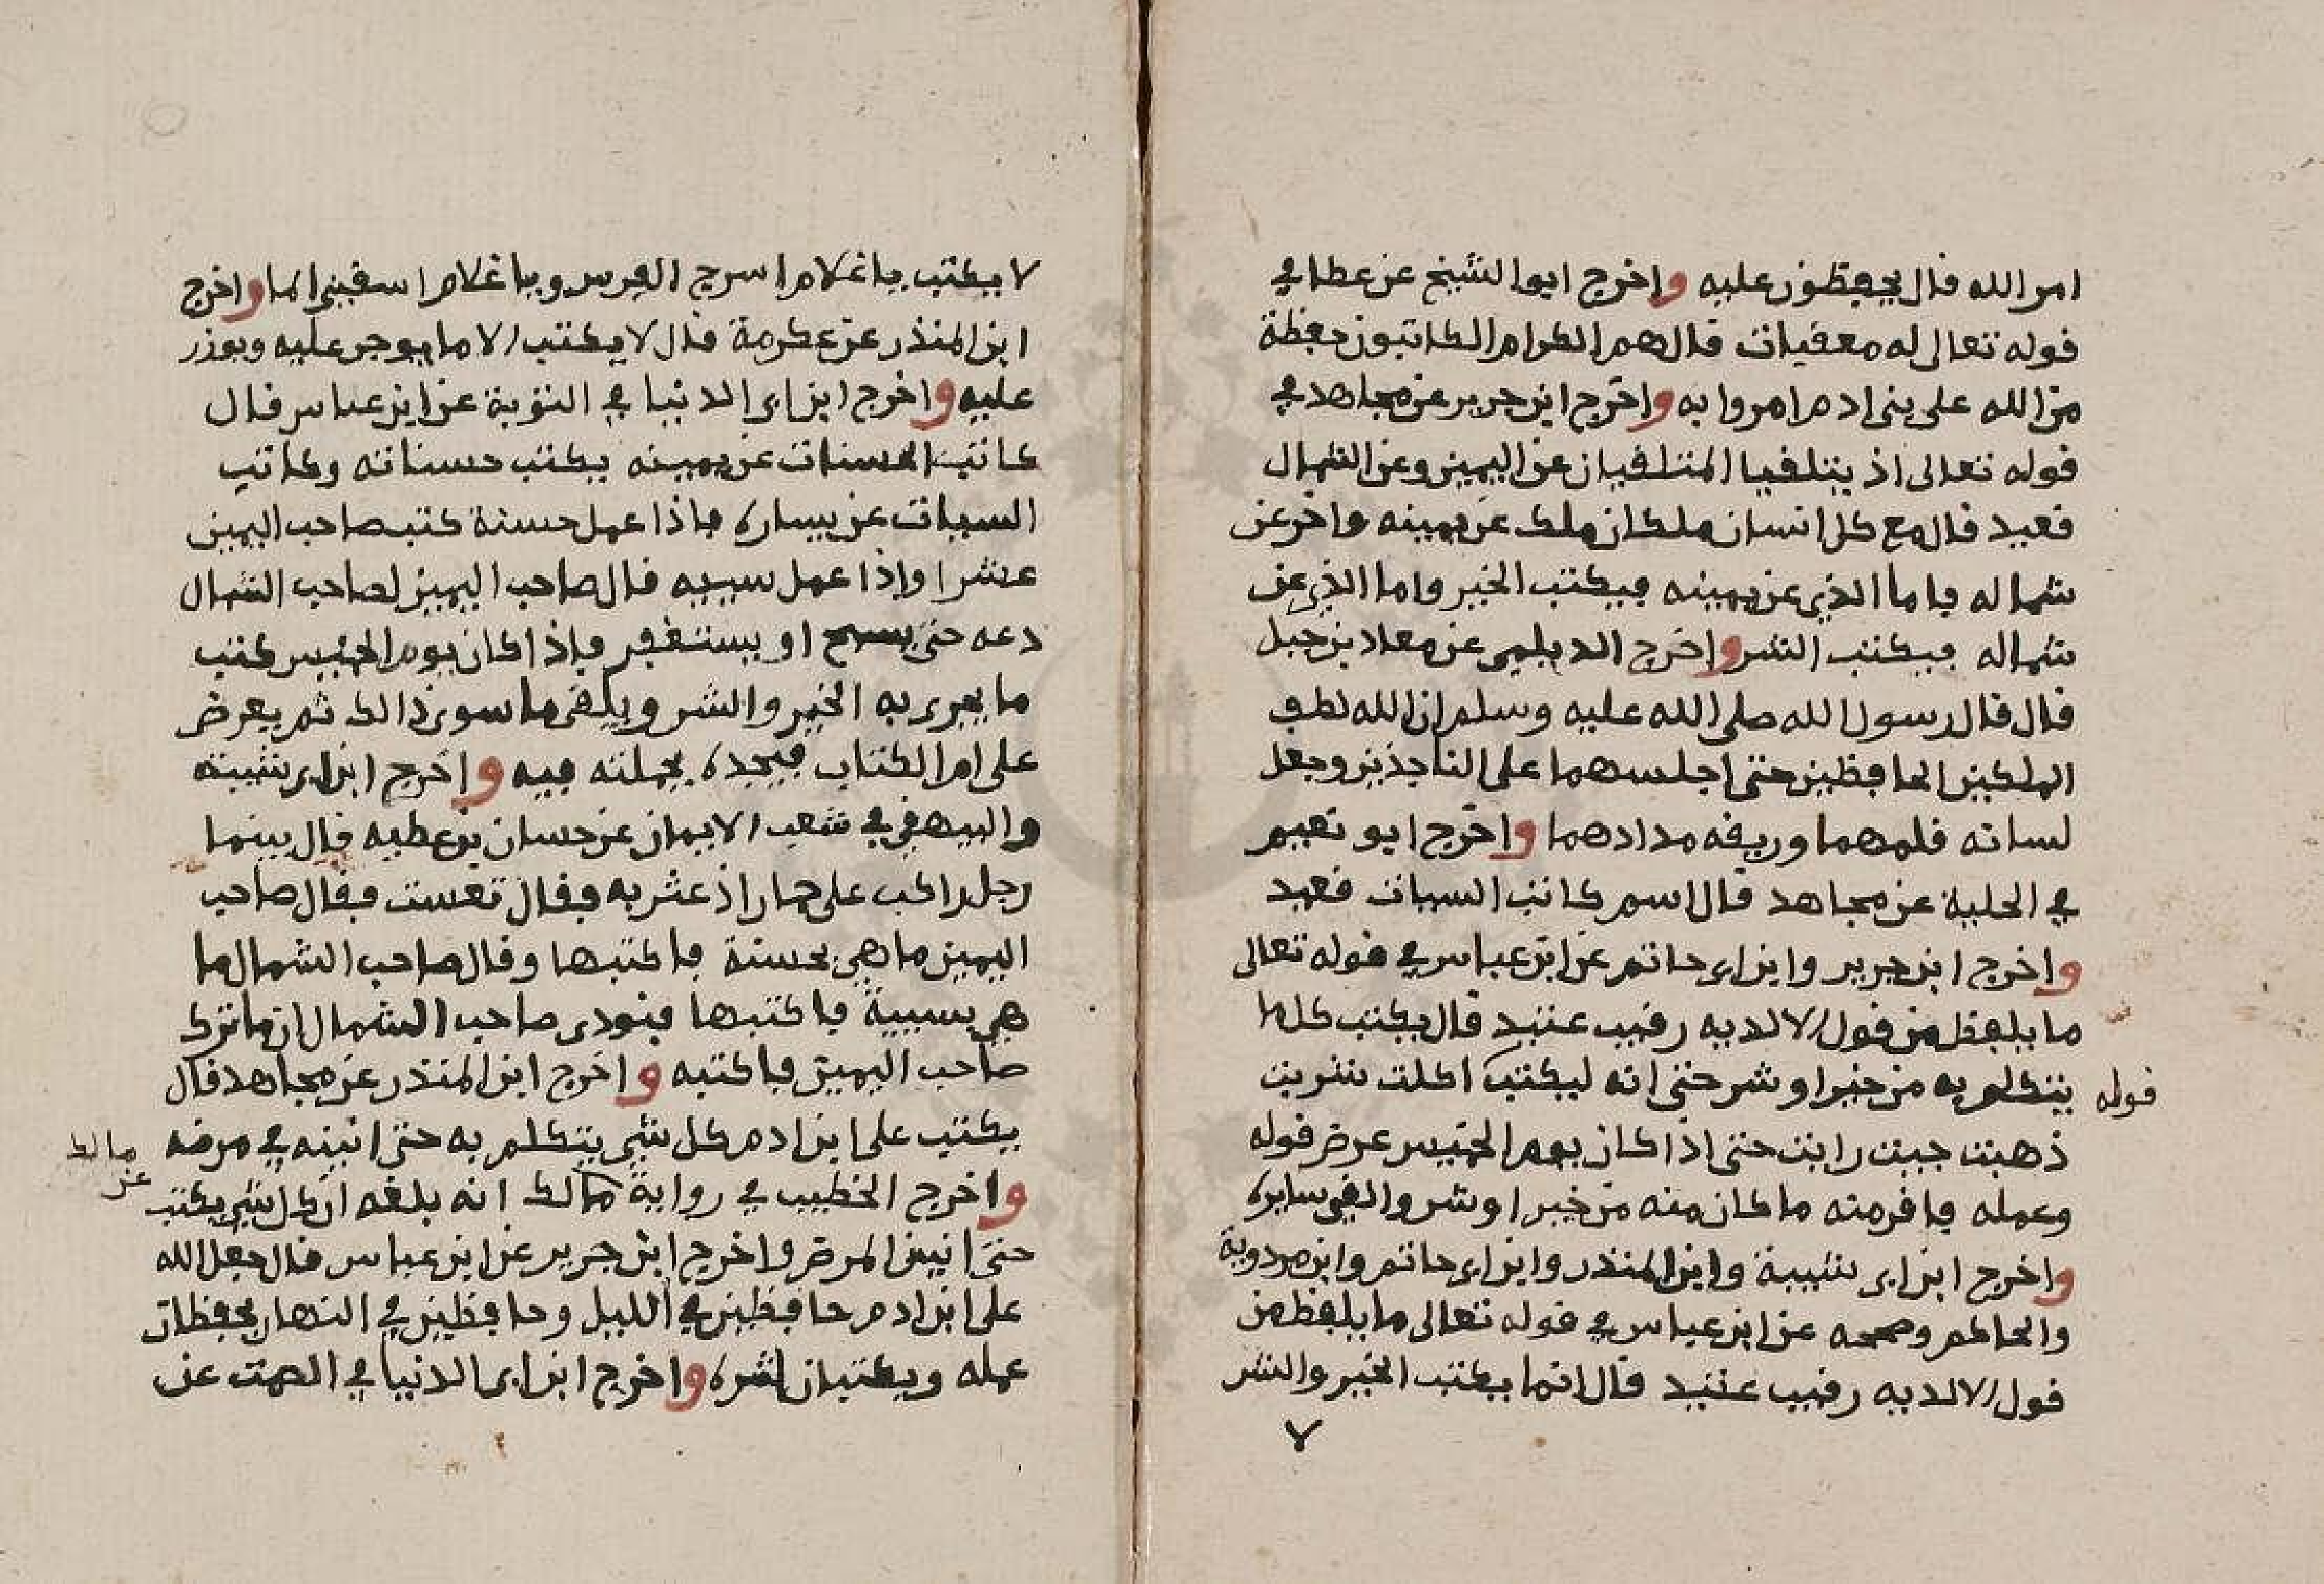 امر الله قال يحفظون عليه واخرج ابوا الشيخ عن عطا في
قوله تعالى له معقبات قال هم الكرام الكاتبون حفظة
من الله على بنى ادم امروا به واخرج ابن جرير عن مجاهد في
قوله تعالى اذ يتلقيا المتلقيان عن اليمين وعن الشمال
قعيد قال مع كل انسان ملكان ملك عن يمينه واخر عن
شماله فاما الذي عن يمينه فيكتب الخير واما الذي عن
شماله فيكتب الشر واخرج الديلمي عن معاد بن جبل
قال قال رسول الله صلى الله عليه وسلم ان الله لطف
الملكين الحافظين حتى اجلسهما على الناجذين وجعل
لسانه قلمهما وريقه مدادهما واخرج ابو نعيم
في الحلية عن مجاهد قال اسم كاتب السيات قعيد
واخرج ابن جرير وابن ابى حاتم عن ابن عباس في قوله تعالى
ما يلفظ من قول الا لديه رقيب عتيد قال يكتب كل ما
يتكلم به من خير او شر حتى انه ليكتب اكلت شربت
قوله
ذهبت جيت رايت حتى اذا كان يوم الخميس عرض قوله
وعمله فاقر منه ما كان منه من خير او شر والقى سايره
واخرج ابن ابى شيبة وابن المنذر وابن ابى حاتم وابن مردوية
والحاكم وصححه عن ابن عباس في قوله تعالى ما يلفظ من
قول الا لديه رقيب عتيد قال انما يكتب الخير والشر
لا يكتب يا غلام اسرج الفرس ويا غلام اسقينى الما واخرج
ابن المنذر عن عكرمة قال لا يكتب الا ما يوجر عليه ويوزر
عليه واخرج ابن ابى الدنيا في التوبة عن ابن عباس قال
كاتب الحسنات عن يمينه يكتب حسناته وكاتب
السيات عن يساره فاذا عمل حسنة كتب صاحب اليمين
عشرا واذا عمل سييه قال صاحب اليمين لصاحب الشمال
دعه حتى يسبح او يستغفر فاذا كان يوم الخميس كتب
ما يجرى به الخير والشر ويلقى ما سوى ذالك ثم يعرض
على ام الكتاب فيجده بجملته فيه واخرج ابن ابى شيبة
والبيهقي في شعب الايمان عن حسان بن عطيه قال بينما
رجل راكب على حمار اذ عثر به فقال تعست فقال صاحب
اليمين ما هي بحسنة فاكتبها وقال صاحب الشمال ما
هي بسيية فاكتبها فنودى صاحب الشمال ان ما ترك
صاحب اليمين فاكتبه واخرج ابن المنذر عن مجاهد قال
يكتب على ابن ادم كل شي يتكلم به حتى انينه في مرضه
مالك
عن
واخرج الخطيب في رواية مالك انه بلغه ان كل شي يكتب
حتى انين المرض واخرج ابن جرير عن ابن عباس قال جعل الله
على ابن ادم حافظين في الليل وحافظين في النهار يحفظان
عمله ويكتبان اثره واخرج ابن ابى الدنيا في الصمت عن